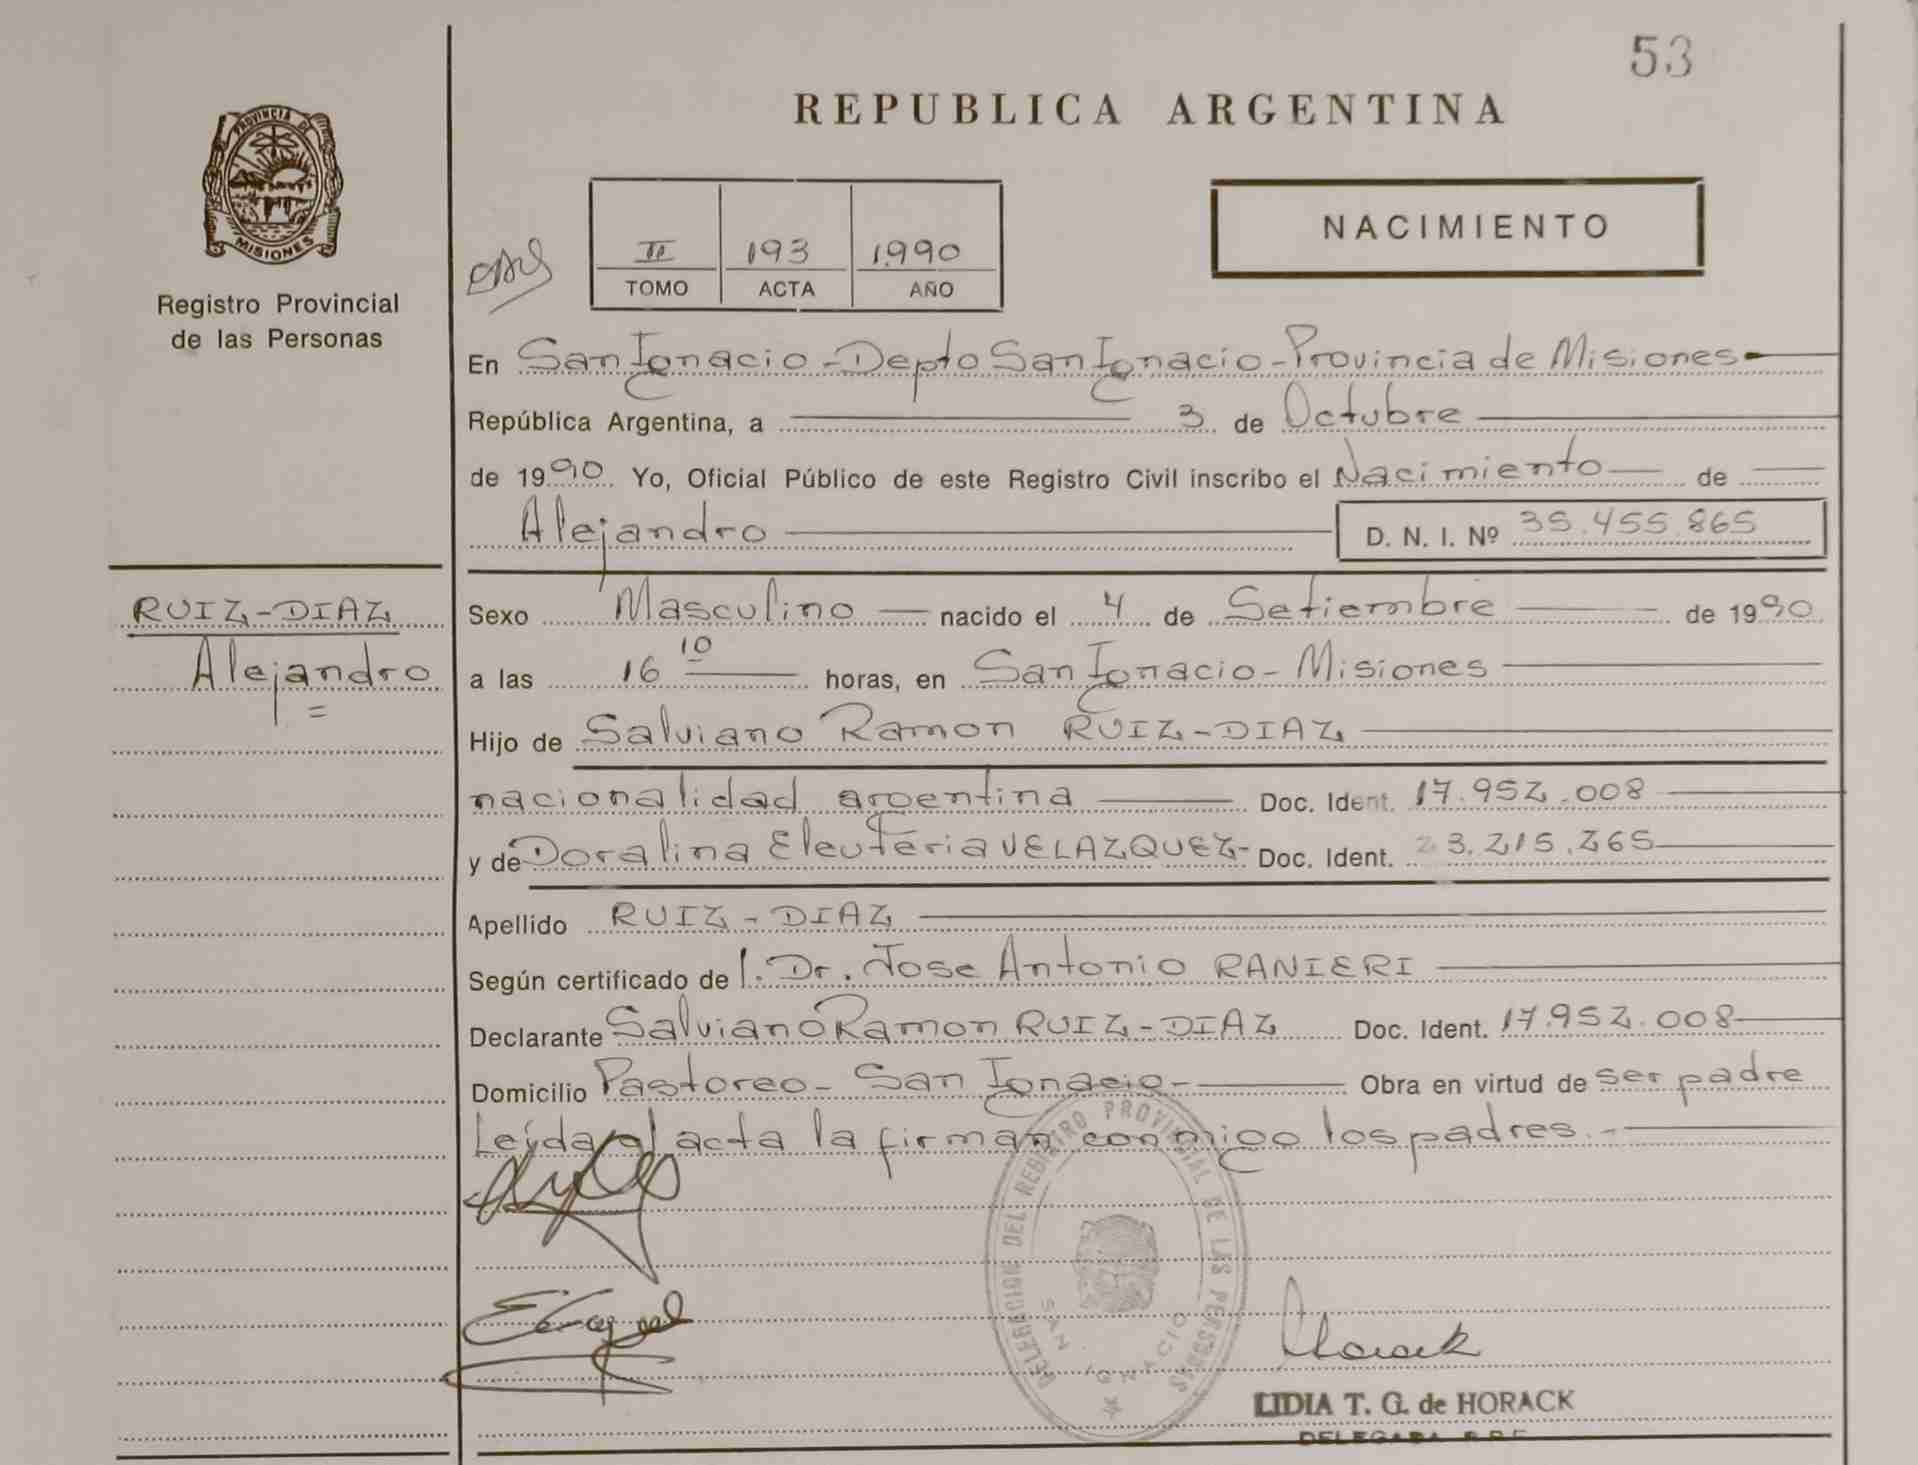 53
REPUBLICA ARGENTINA
PROVINCIA DE MISIONES
Registro Provincial
de las Personas
NACIMIENTO
II 193 1.990
TOMO ACTA AÑO
En San Ignacio - Depto San Ignacio - Provincia de Misiones
República Argentina, a 3 de Octubre
de 1990 Yo, Oficial Público de este Registro Civil inscribo el Nacimiento de
Alejandro D. N. I. Nº 35.455.865
RUIZ-DIAZ
Alejandro
Sexo Masculino nacido el 4 de Setiembre de 1990
a las 16 10 horas, en San Ignacio - Misiones
Hijo de Salviano Ramon RUIZ-DIAZ
nacionalidad argentina Doc. Ident. 17.952.008
y de Doralina Eleuteria VELAZQUEZ- Doc. Ident. 23.215.265
Apellido RUIZ - DIAZ
Según certificado de l. Dr. Jose Antonio RANIERI
Declarante Salviano Ramon RUIZ-DIAZ Doc. Ident. 17.952.008
Domicilio Pastoreo - San Ignacio - Obra en virtud de ser padre
Leída el acta la firman conmigo los padres. -
DELEGACION DEL REGISTRO PROVINCIAL DE LAS PERSONAS
SAN IGNACIO
Horack
LIDIA T. G. de HORACK
DELEGADA